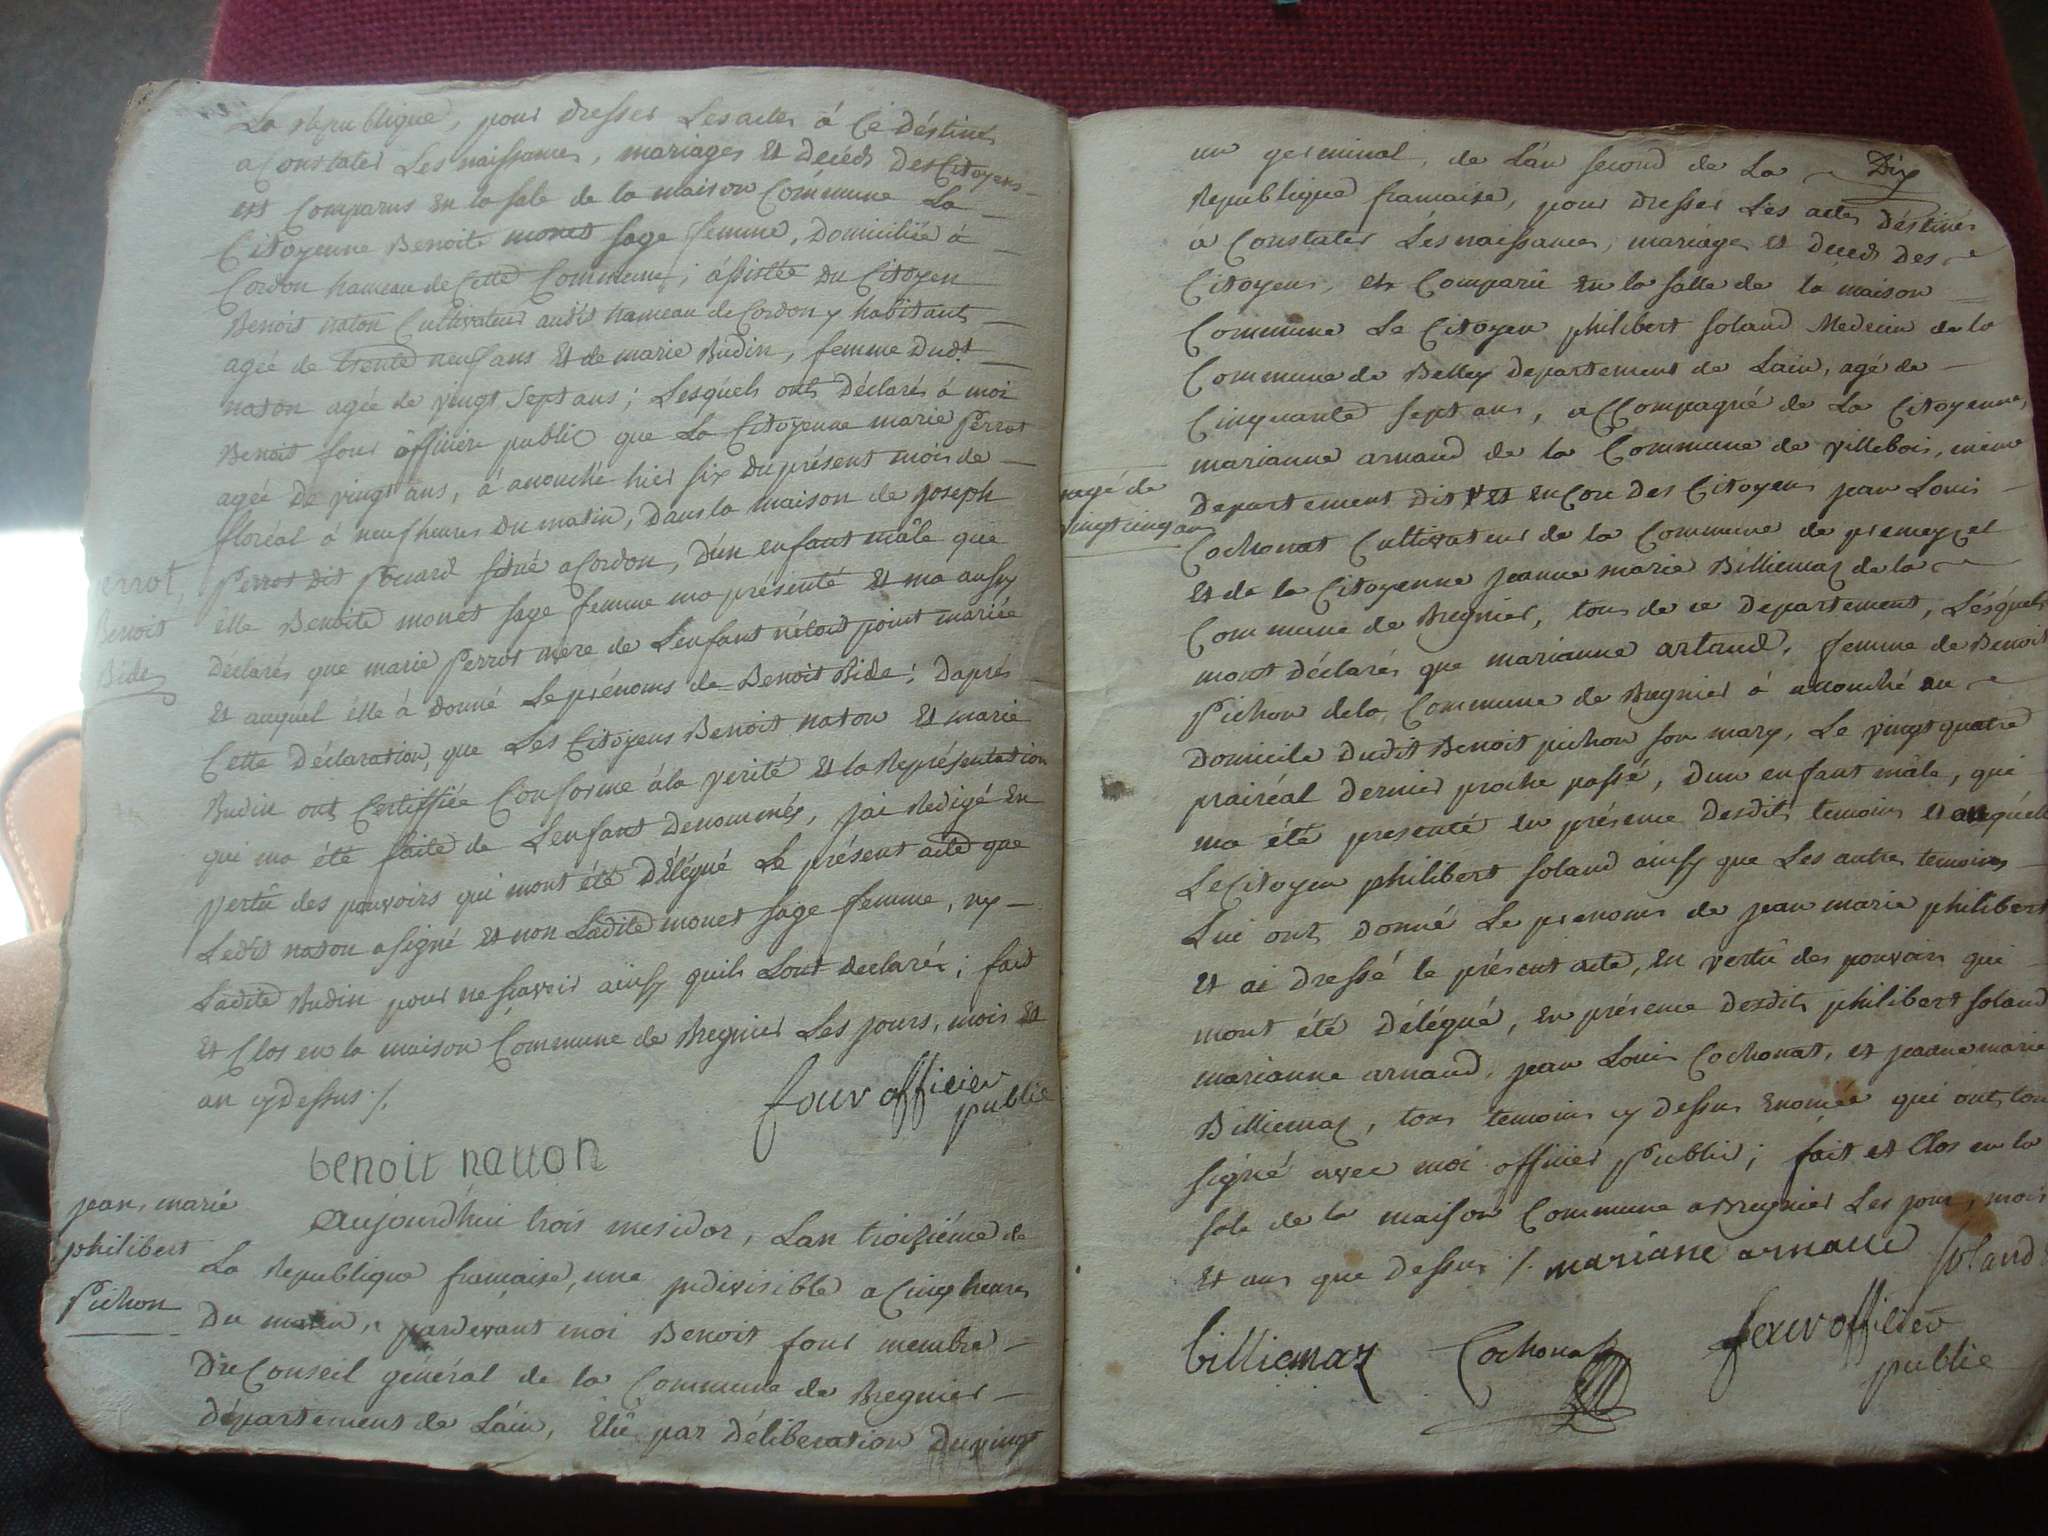 La Republique, pour dresser Les actes à Ce déstinés
a Constater Les naissances, mariages Et décéds Des Citoyens
est Comparus En la sale de la maison Commune La
Citoyenne Benoite monet sage femme, Domiciliée à
Cordon hameau de Cette Commune; assistée du Citoyen
Benoit naton Cultivateur audit hameau de Cordon y habitant
agée de trente neuf ans Et de marie Budin, femme dudt
naton agée de vingt Sept ans; Lesquels ont Déclarés à moi
Benoit four officier public que La Citoyenne marie Perrot
agée De vingt ans, à acouché hier six du présent mois de
floréal à neuf heures Du matin, Dans la maison de joseph
Perrot dit situé a Cordon, D'un enfant mâle que
Elle Benoite monet sage femme ma présenté Et ma aussy
Déclarés que marie Perrot mere de L'enfant n'étoit point mariée
Et auquel elle à donné Le prénoms de Benoit Bide; Daprés
Cette Déclaration, que Les Citoyens Benoit naton Et marie
Budin ont Certiffiée Conforme à la verité Et la Représentation
qui ma été faite de L'enfant denommés, jai Redigé En
vertû des pouvoirs qui mont été Délégué Le présent acte que
Ledit naton a signé Et non Ladite monet sage femme, ny
Ladite Budin pour ne scavoir ainsy quils Lont declarés; fait
Et Clos en la maison Commune de Bregnier Les jours, mois Et
an cy dessus /.
four officier
public
benoit naton
errot
Benoit
Bide
jean, marie
philibert
Pichon
aujourd'hui trois mesidor, Lan troiziéme de
La Republique francaise, une indivisible a Cinq heures
Du matin, pardevant moi Benoit four membre
Du Conseil général de la Commune de Bregnier
département de Lain, Elû par déliberation Du vingt
Dix
un germinal, de L'an second de La
Republique francaise, pour dresser Les actes déstinés
à Constater Les naissances, mariages et décéds Des
Citoyens, est Comparû En la salle de la maison
Commune Le Citoyen philibert soland Medecin de la
Commune de Belley Departement de Lain, agé de
Cinquante sept ans, accompagné de La Citoyenne
marianne arnaud de la Commune de villebois, même
Departement dit Et encore Des Citoyens jean Louis
agé de
vingt cinq ans
Cochonat Cultivateur de la Commune de premeyzel
Et de la Citoyenne jeanne marie Billiemaz de la
Commune de Bregnier, tous de ce Departement, Lesquels
mont Déclarés que marianne artaud, femme de Benoit
Pichon de la Commune de Bregnier à acouché au
Domicile Dudit Benoit pichon son mary, Le vingt quatre
prairéal dernier proche passé, Dun enfant mâle, qui
ma été presenté en présence Desdits temoins et auquel
Le Citoyen philibert soland ainsy que Les autres temoins
Lui ont donné Le prenoms de jean marie philibert
Et ai dressé le présent acte, En vertû des pouvoirs qui
mont été Délégué, en présence desdits philibert soland
marianne arnaud, jean Louis Cochonat, et jeanne marie
Billiemaz, tous temoins cy dessus Enomée qui ont tous
signé avec moi officier Public; fait et Clos en la
sale de la maison Commune a Bregnier Les jour, mois
Et ans que dessus /. mariane arnaud soland
billiemaz Cochonat four officier
public